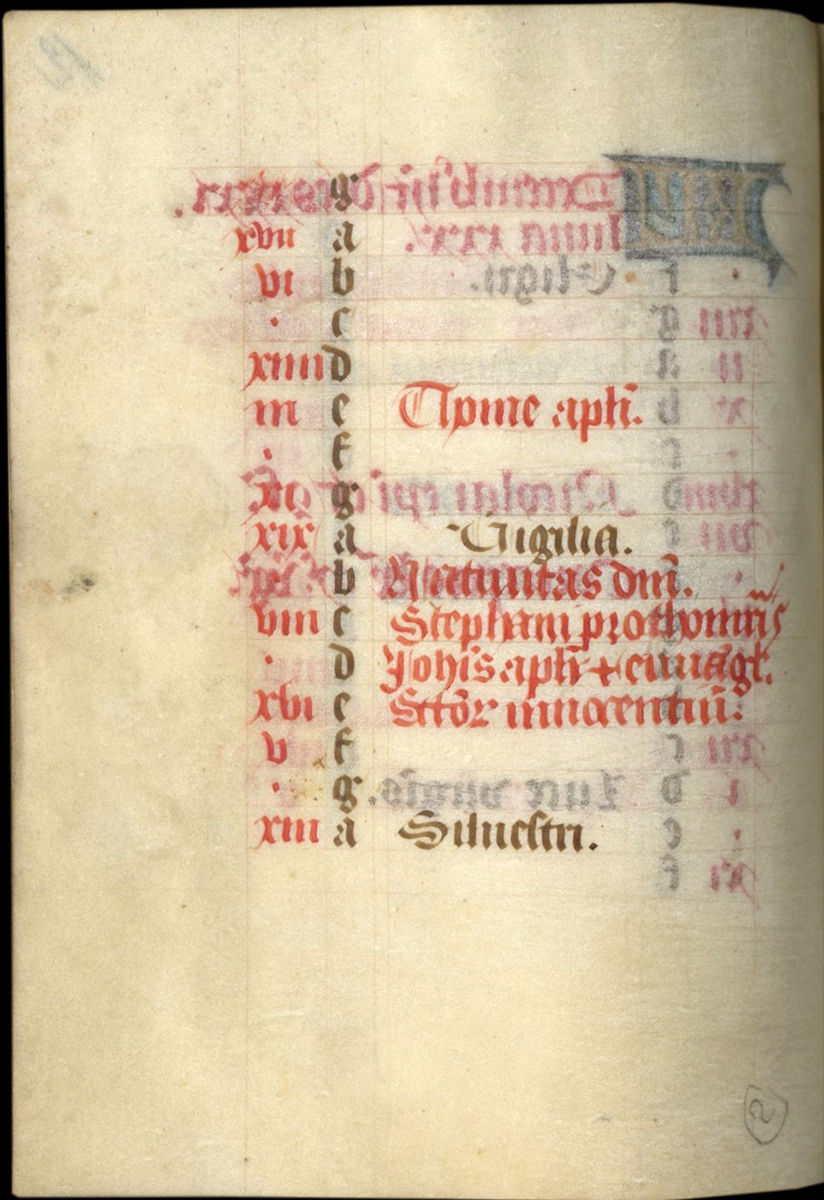 g
xvii a
vi b
. c
xiiii d
iii e Thome apl̃i.
. f
xi g
xix a Vigilia.
. b Natiuitas dñi.
viii c Stephani prothomr̃is
. d Joh̃is apl̃i + euuãgl̃.
xvi e Sct̃oꝝ innocentiũ.
v f
. g
xiii a Siluestri.
2